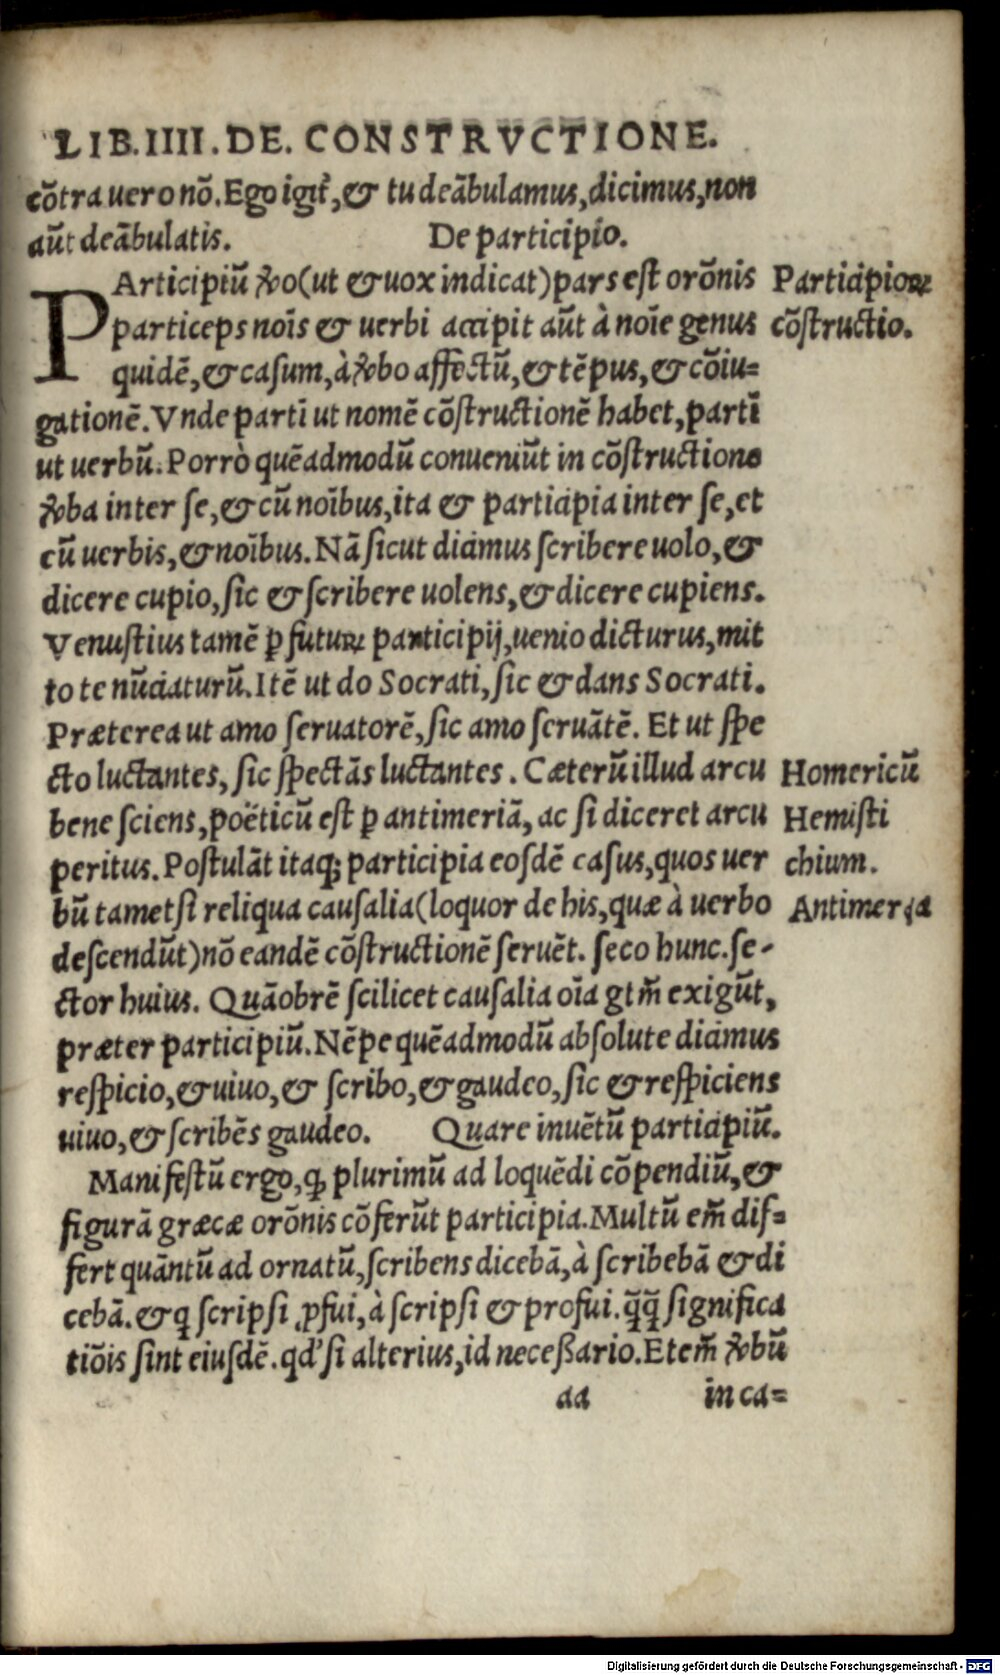 LIB.IIII.DE. CONSTRVCTIONE.
cōtra uero nō.Ego igit᷑,& tu deābulamus,dicimus,non
aūt deābulatis. De participio.
PArticipiū ꝟo(ut & uox indicat)pars est orōnis
particeps noīs & uerbi accipit aūt à noīe genus
quidē,& casum,à ꝟbo affectū,& tēpus,& cōiu=
gationē.Vnde partī ut nomē cōstructionē habet,partī
ut uerbū.Porrò quēadmodū conueniūt in cōstructione
ꝟba inter se,& cū noībus,ita & participia inter se,et
cū uerbis,& noībus.Nā sicut dicimus scribere uolo,&
dicere cupio,sic & scribere uolens,& dicere cupiens.
Venustius tamē ꝑ futuꝝ participij,uenio dicturus,mit
to te nūciaturū.Itē ut do Socrati,sic & dans Socrati.
Præterea ut amo seruatorē,sic amo seruātē. Et ut spe
cto luctantes,sic spectās luctantes. Cæterū illud arcu
bene sciens,poëticū est ꝑ antimeriā,ac si diceret arcu
peritus.Postulāt itaq; participia eosdē casus,quos uer
bū tametsi reliqua causalia(loquor de his,quæ à uerbo
descendūt)nō eandē cōstructionē seruēt. seco hunc.se-
ctor huius. Quāobrē scilicet causalia oīa gtm̄ exigūt,
præter participiū.Nēpe quēadmodū absolute dicimus
respicio,& uiuo,& scribo,& gaudeo,sic & respiciens
uiuo,& scribēs gaudeo. Quare inuētū participiū.
Manifestū ergo,ꝙ plurimū ad loquēdi cōpendiū,&
figurā græcæ orōnis cōferūt participia.Multū em̄ dif=
fert quāntū ad ornatū,scribens dicebā,à scribebā & di
cebā.& ꝗ scripsi ꝓfui,à scripsi & profui.q̄q̄ significa
tiōis sint eiusdē.qd' si alterius,id necessario.Etem̄ ꝟbū
aa in ca=
Participioꝝ
cōstructio.
Homericū
Hemisti
chium.
Antimeria
Digitalisierung gefördert durch die Deutsche Forschungsgemeinschaft - DFG